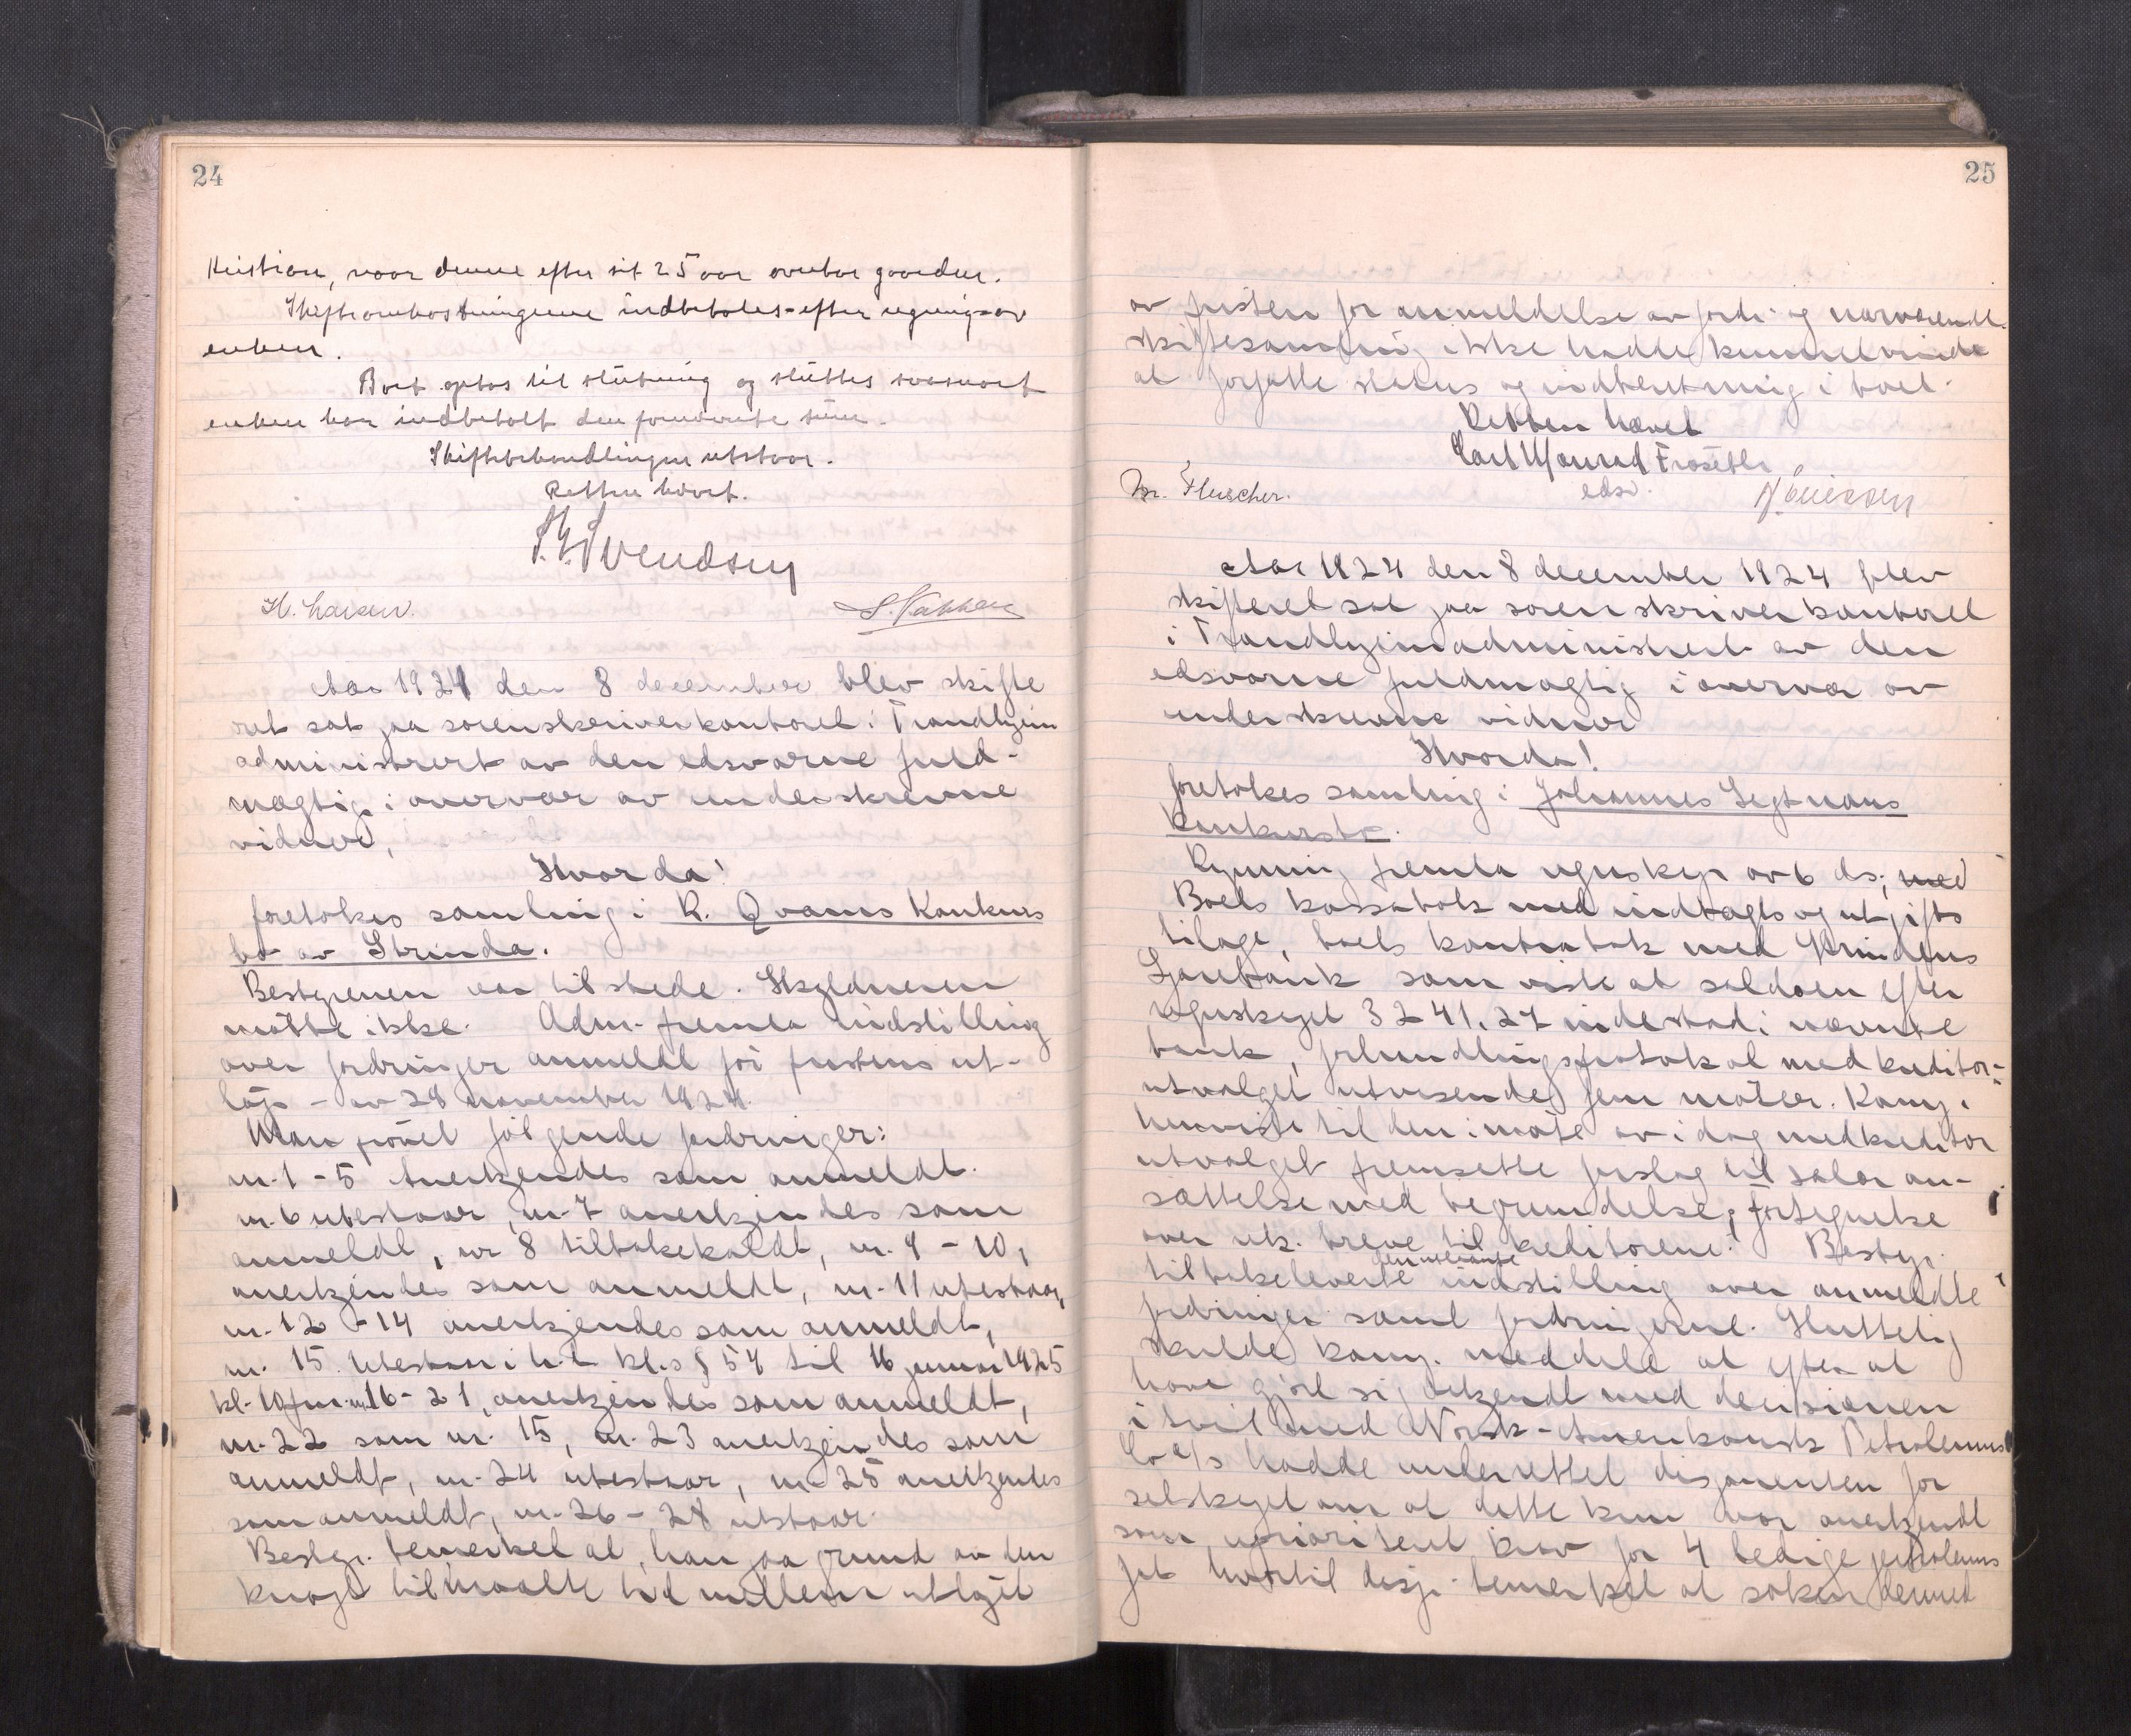 24
Kristian, naar denne efter sit 25 aar overtar gaarden.
Skifteomkostningerne indbetales efter regning av
enken.
Boet optas til slutning og sluttes saasnart
enken har indbetalt den fornævnte sum.
Skiftebehandlingen utstaar.
Retten hævet.
Svendsen
H. Larsen. S. Nakken
Aar 1924 den 8 december blev skifte
ret sat paa sorenskriverkontoret i Trondhjem
administrert av den edsvorne fuld-
mægtig i overvær av underskrevne
vidner,
Hvorda!
foretokes samling i R. Qvams Konkurs
bo av Strinda.
Bestyreren var tilstede. Skyldneren
møtte ikke. Adm. fremla indstilling
over fordringer anmeldt før fristens ut-
løp - av 28 november 1924.
Man prøvet følgende fordringer:
nr. 1 - 5 Anerkjendes som anmeldt.
nr. 6 utestaar, nr. 7 anerkjendes som
anmeldt, nr 8 tilbakekaldt, nr. 9 - 10,
anerkjendes som anmeldt, nr. 11 utestaar,
nr. 12 - 14 anerkjendes som anmeldt,
nr. 15. Utestaar i h.t. kl.s § 54 til 16 januar 1925
kl. 10 fm. nr 16 - 21, anerkjendes som anmeldt,
nr. 22 som nr. 15, nr. 23 anerkjendes som
anmeldt, nr. 24 utestaar, nr. 25 anerkjendes
som anmeldt, nr. 26 - 28 utstaar.
Bestyr. bemerket at han paa grund av den
knapt tilmaalte tid mellem utløpet
25
av fristen for anmeldelse av fordr. og nærværende
skiftesamling ikke hadde kunnet rinde
at forfatte status og indberetning i boet.
Retten hævet
Carl Konrad Frøseth
eds.
Fleischer.
Aar 1924 den 8 december 1924 blev
skifteret sat paa sorenskriverkontoret
i Trondhjem administrert av den
edsvorne fuldmægtig i overvær av
underskrevne vidner
Hvorda!
foretokes samling i Johannes Segtnans
konkursbo.
Rynning fremla regnskap av 6 ds; med
Boets kassabok med indtægts og utgifts
bilage, boets kontrabok med Strindens
Sparebank som viste at saldoen efter
regnskapet 3241.27 indestod i nævnte
bank, forhandlingsprotokol med kreditor-
utvalget utvisende fem møter. Kony.
henviste til den i møte av i dag med kreditor
utvalget fremsette forslag til salær an-
sættelse med begrundelse, Fortegnelse
over utk. breve til kreditorene. Bestyr.
tilbakeleverte den utlaante indstilling over anmeldte
fordringer samt fordringerne. Sluttelig
skulde kony. meddele at efter at
have gjort sig bekjendt med decisionen
i tvist med Norsk-Amerikansk Petroleums
Co A/S hadde underrettet disponenten for
selskapet om at dette kun var anerkjendt
som uprioritert krav for 4 ledige petroleums
fat hvortil disp. bemerket at saken dermed